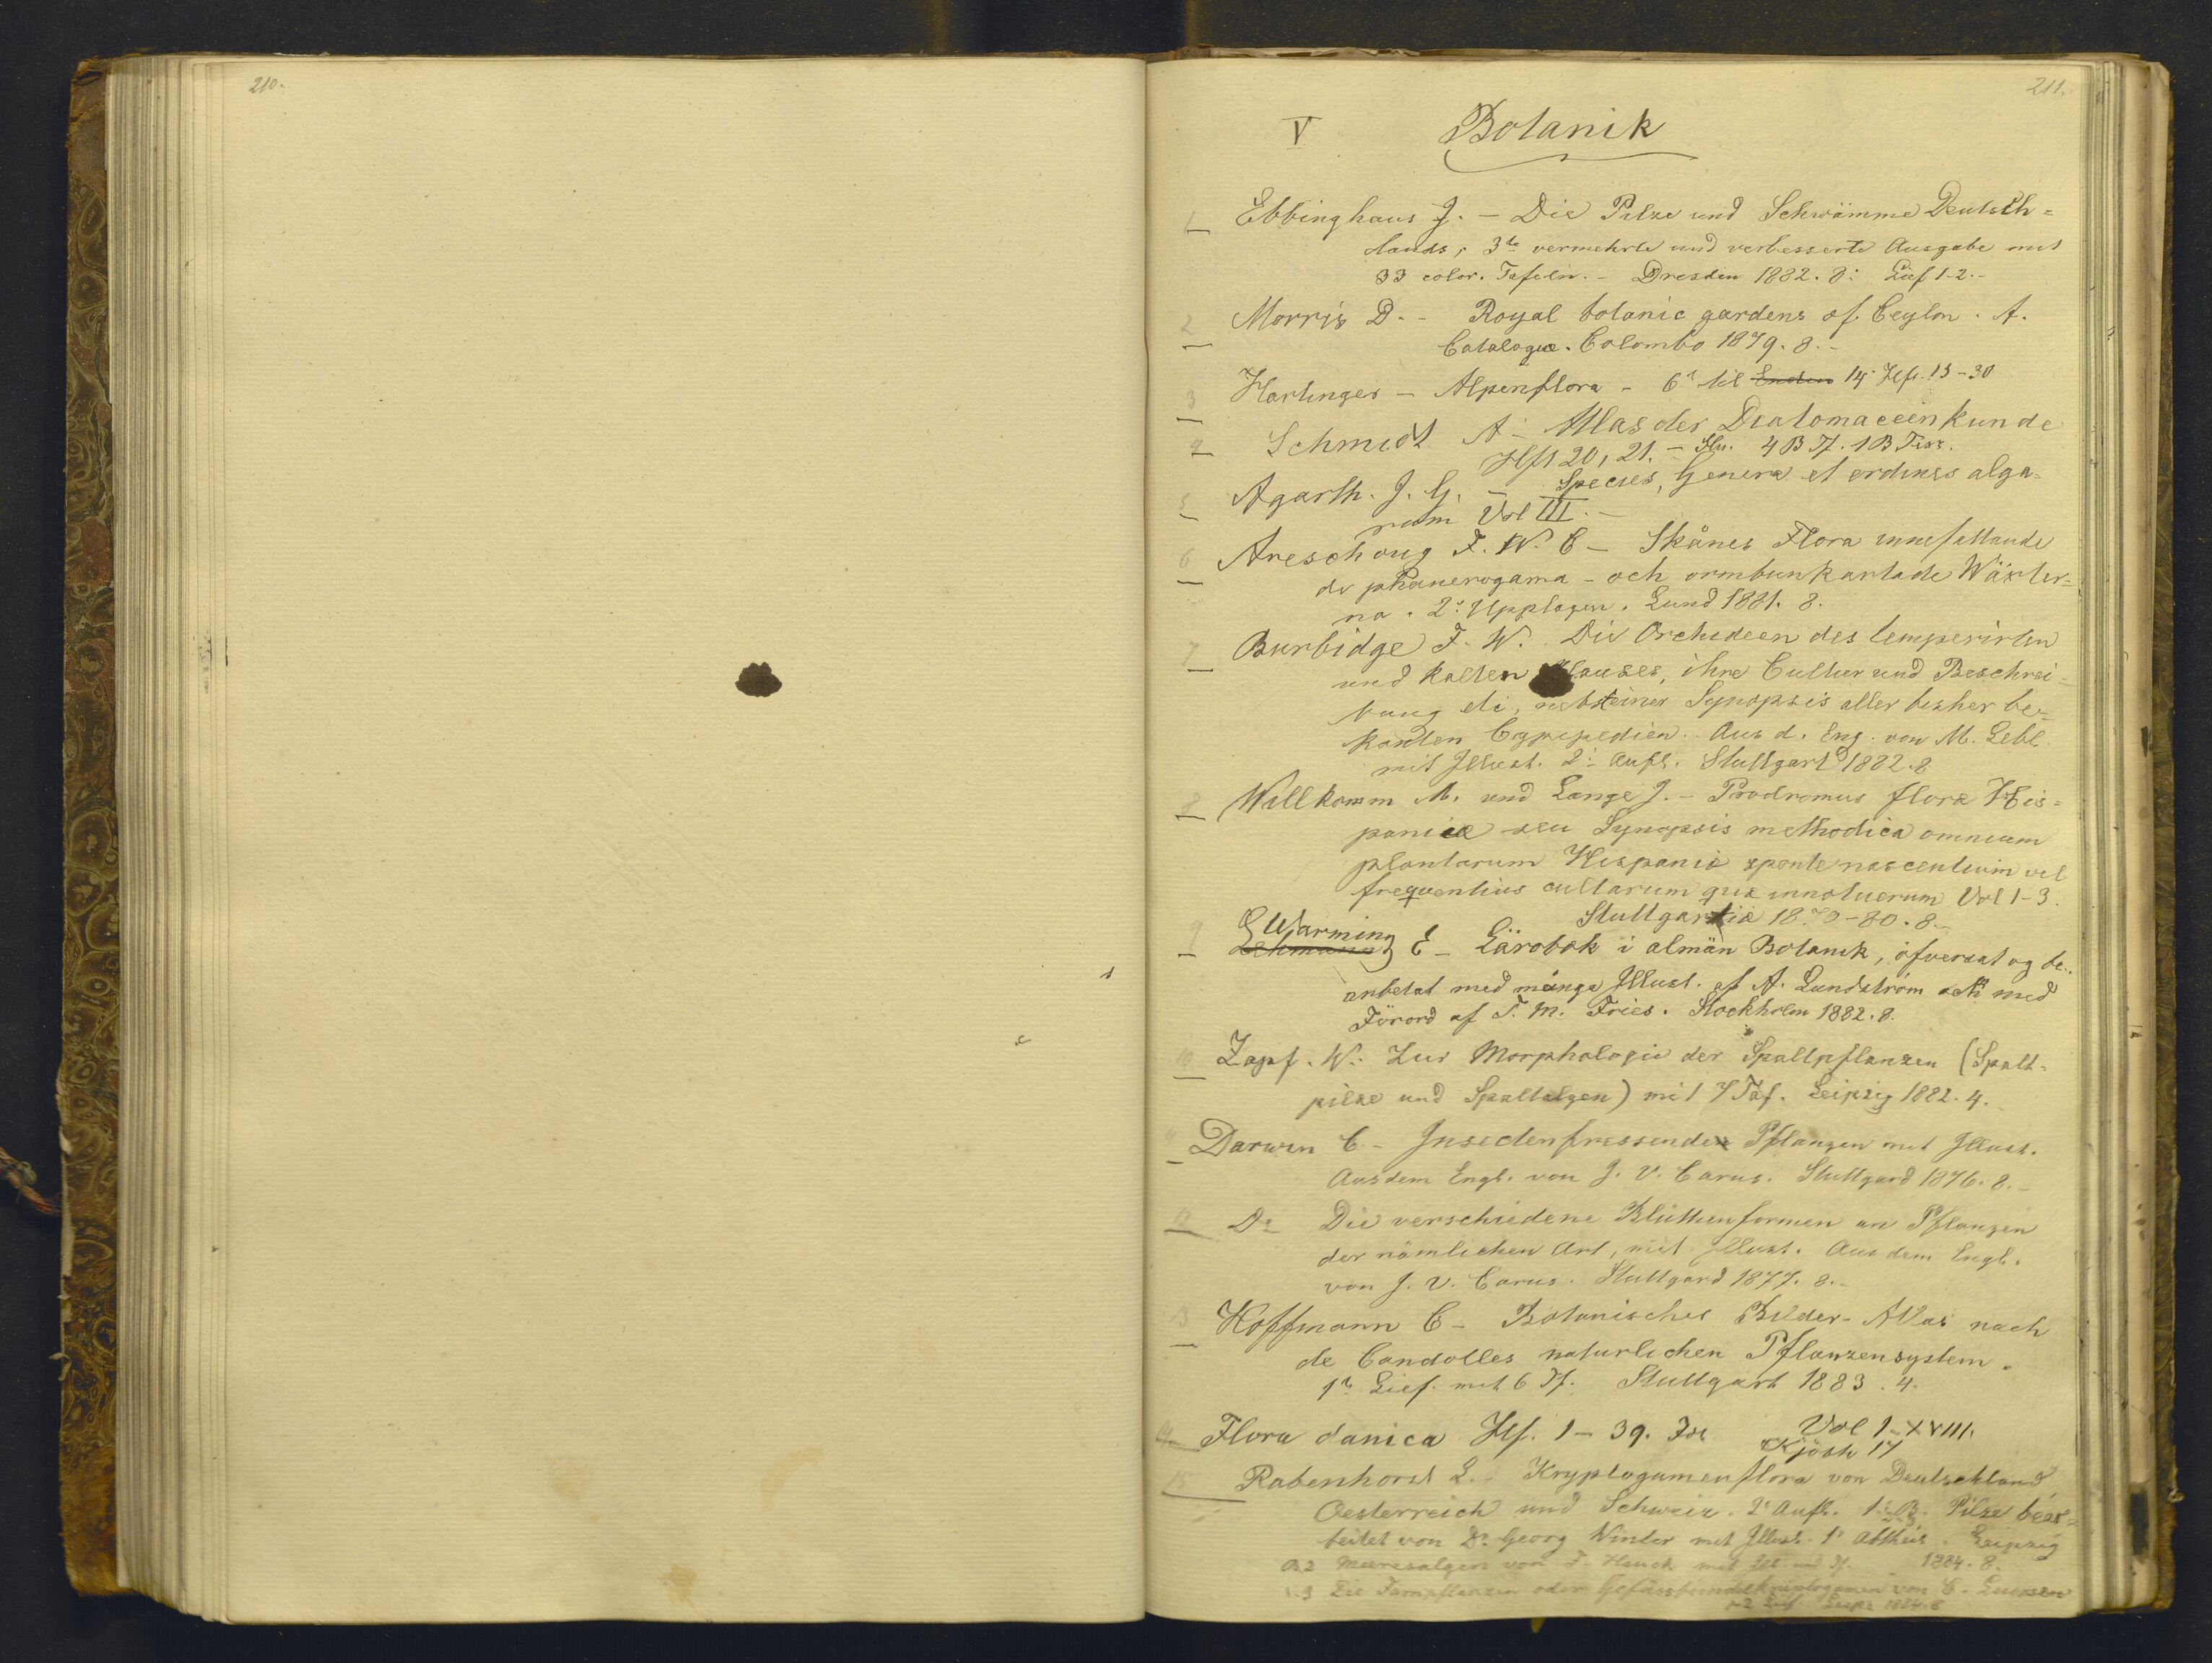 210.
211.
V Botanik
1 Ebbinghaus J. – Die Pilze und Schwämme Deutsch=
lands, 3te vermehrte und verbesserte Ausgabe mit
33 color. Tafeln. – Dresden 1882. 8: Lief 1-2.-
2 Morris D. - Royal botanic gardens of Ceylon. A.
Catalogue. Colombo 1879. 8. -
3 Hartinger – Alpenflora - 6 til Enden 14. Hft. 13-30
4 Schmidt A - Atlas der Diatomaceenkunde
Hft 20, 21. –
5 Agardh. J. G. – Species, Genera et ordines alga-
rum Vol III. –
6 Areschoug F. W. C – Skånes Flora innefattande
de phanerogama - och ormbunkartade Wäxter=
na. 2: Upplagen. Lund 1881. 8.
7 Burbidge F. W. Die Orchideen des temperirten
und kalten Hauses, ihre Cultur und Beschrei=
bung etc, nebst einer Synopsis aller bisher be=
kanten Cypripedien. Aus d. Eng. von M. Lebl.
mit Illust. 2: Aufl. Stuttgart 1882. 8
8 Willkomm M. und Lange J. – Prodromus floræ His=
panicæ seu Synopsis methodica omnium
plantarum Hispaniæ sponte nascentium vel
frequentius cultarum quæ innotuerum Vol 1-3.
Stuttgartiæ 1870-80. 8.-
9 Warming
Lehmann E – Lärobok i almän Botanik, öfversat og be
arbetat med många Illust. af A. Lundström och med
Förord af T. M. Fries. Stockholm 1882. 8.
10 Zopf. W. Zur Morphologie der Spaltpflanzen (Spalt-
pilze und Spaltalgen) mit 7 Taf. Leipzig 1882. 4.
11 Darwin C – Insectenfressenden Pflanzen mit Illust.
Aus dem Engl. von J. V. Carus. Stuttgard 1876. 8. –
12 Do Die verschiedene Blüthenformen an Pflanzen
der nämlichen Art, mit Illust. Aus dem Engl.
von J. V. Carus. Stuttgard 1877. 8. -
13 Hoffmann C – Botanischer Bilder-Atlas nach
de Candolles naturlichen Pflanzensystem.
1te Lief. mit 6 Tf. Stuttgart 1883. 4.
14 Flora danica Hf. 1 – 39. Fol Vol 1-XVIII.
Kjöbh 17
15 Rabenhorst L. - Kryptogamenflora von Deutschland
Oesterreich und Schweiz. 2e Aufl. 1. B. Pilze bear=
beitet von Dr Georg Winter mit Illust. 1e Abtheil. Leipzig
B.2 Meeresalgen von F. Hauck mit 1884. 8.
3 Die Farnpflanzen oder Gefässbündelkryptogamen von C. Luerssen
1-2 Lief Leipz 1884. 8